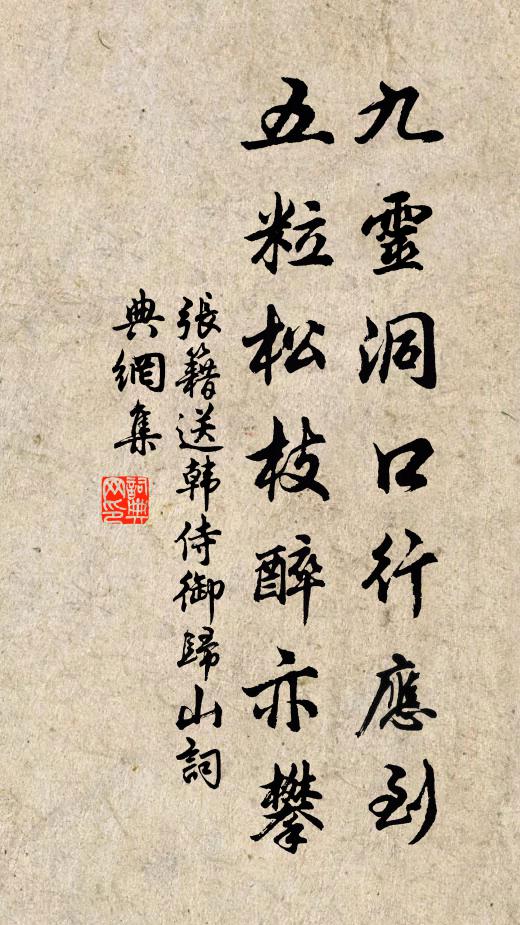 九靈洞口行應到
五粒松枝醉亦攀
張籍送韩侍御歸山詞
典網集
詞典網印